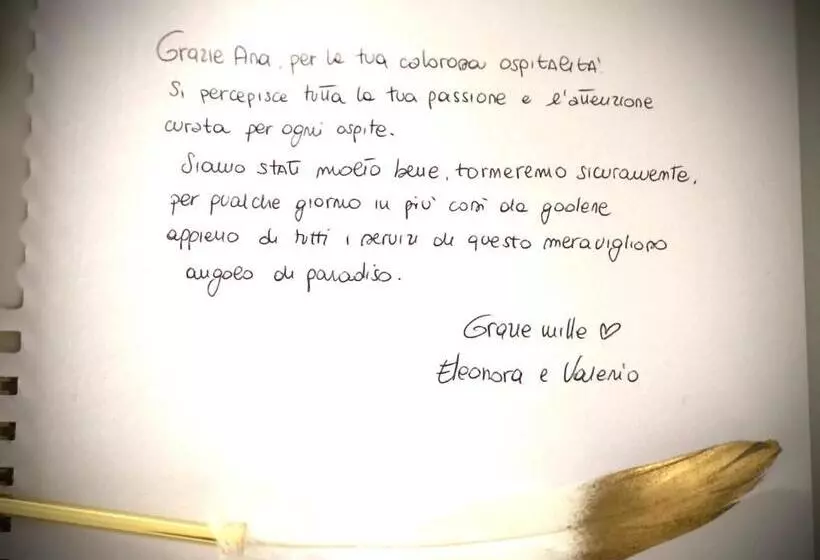 Grazie Ana, per la tua calorosa ospitalità!
Si percepisce tutta la tua passione e l'attenzione
curata per ogni ospite.
Siamo stati molto bene, torneremo sicuramente,
per qualche giorno in più così da godere
appieno di tutti i servizi di questo meraviglioso
angolo di paradiso.
Grazie mille ♡
Eleonora e Valerio